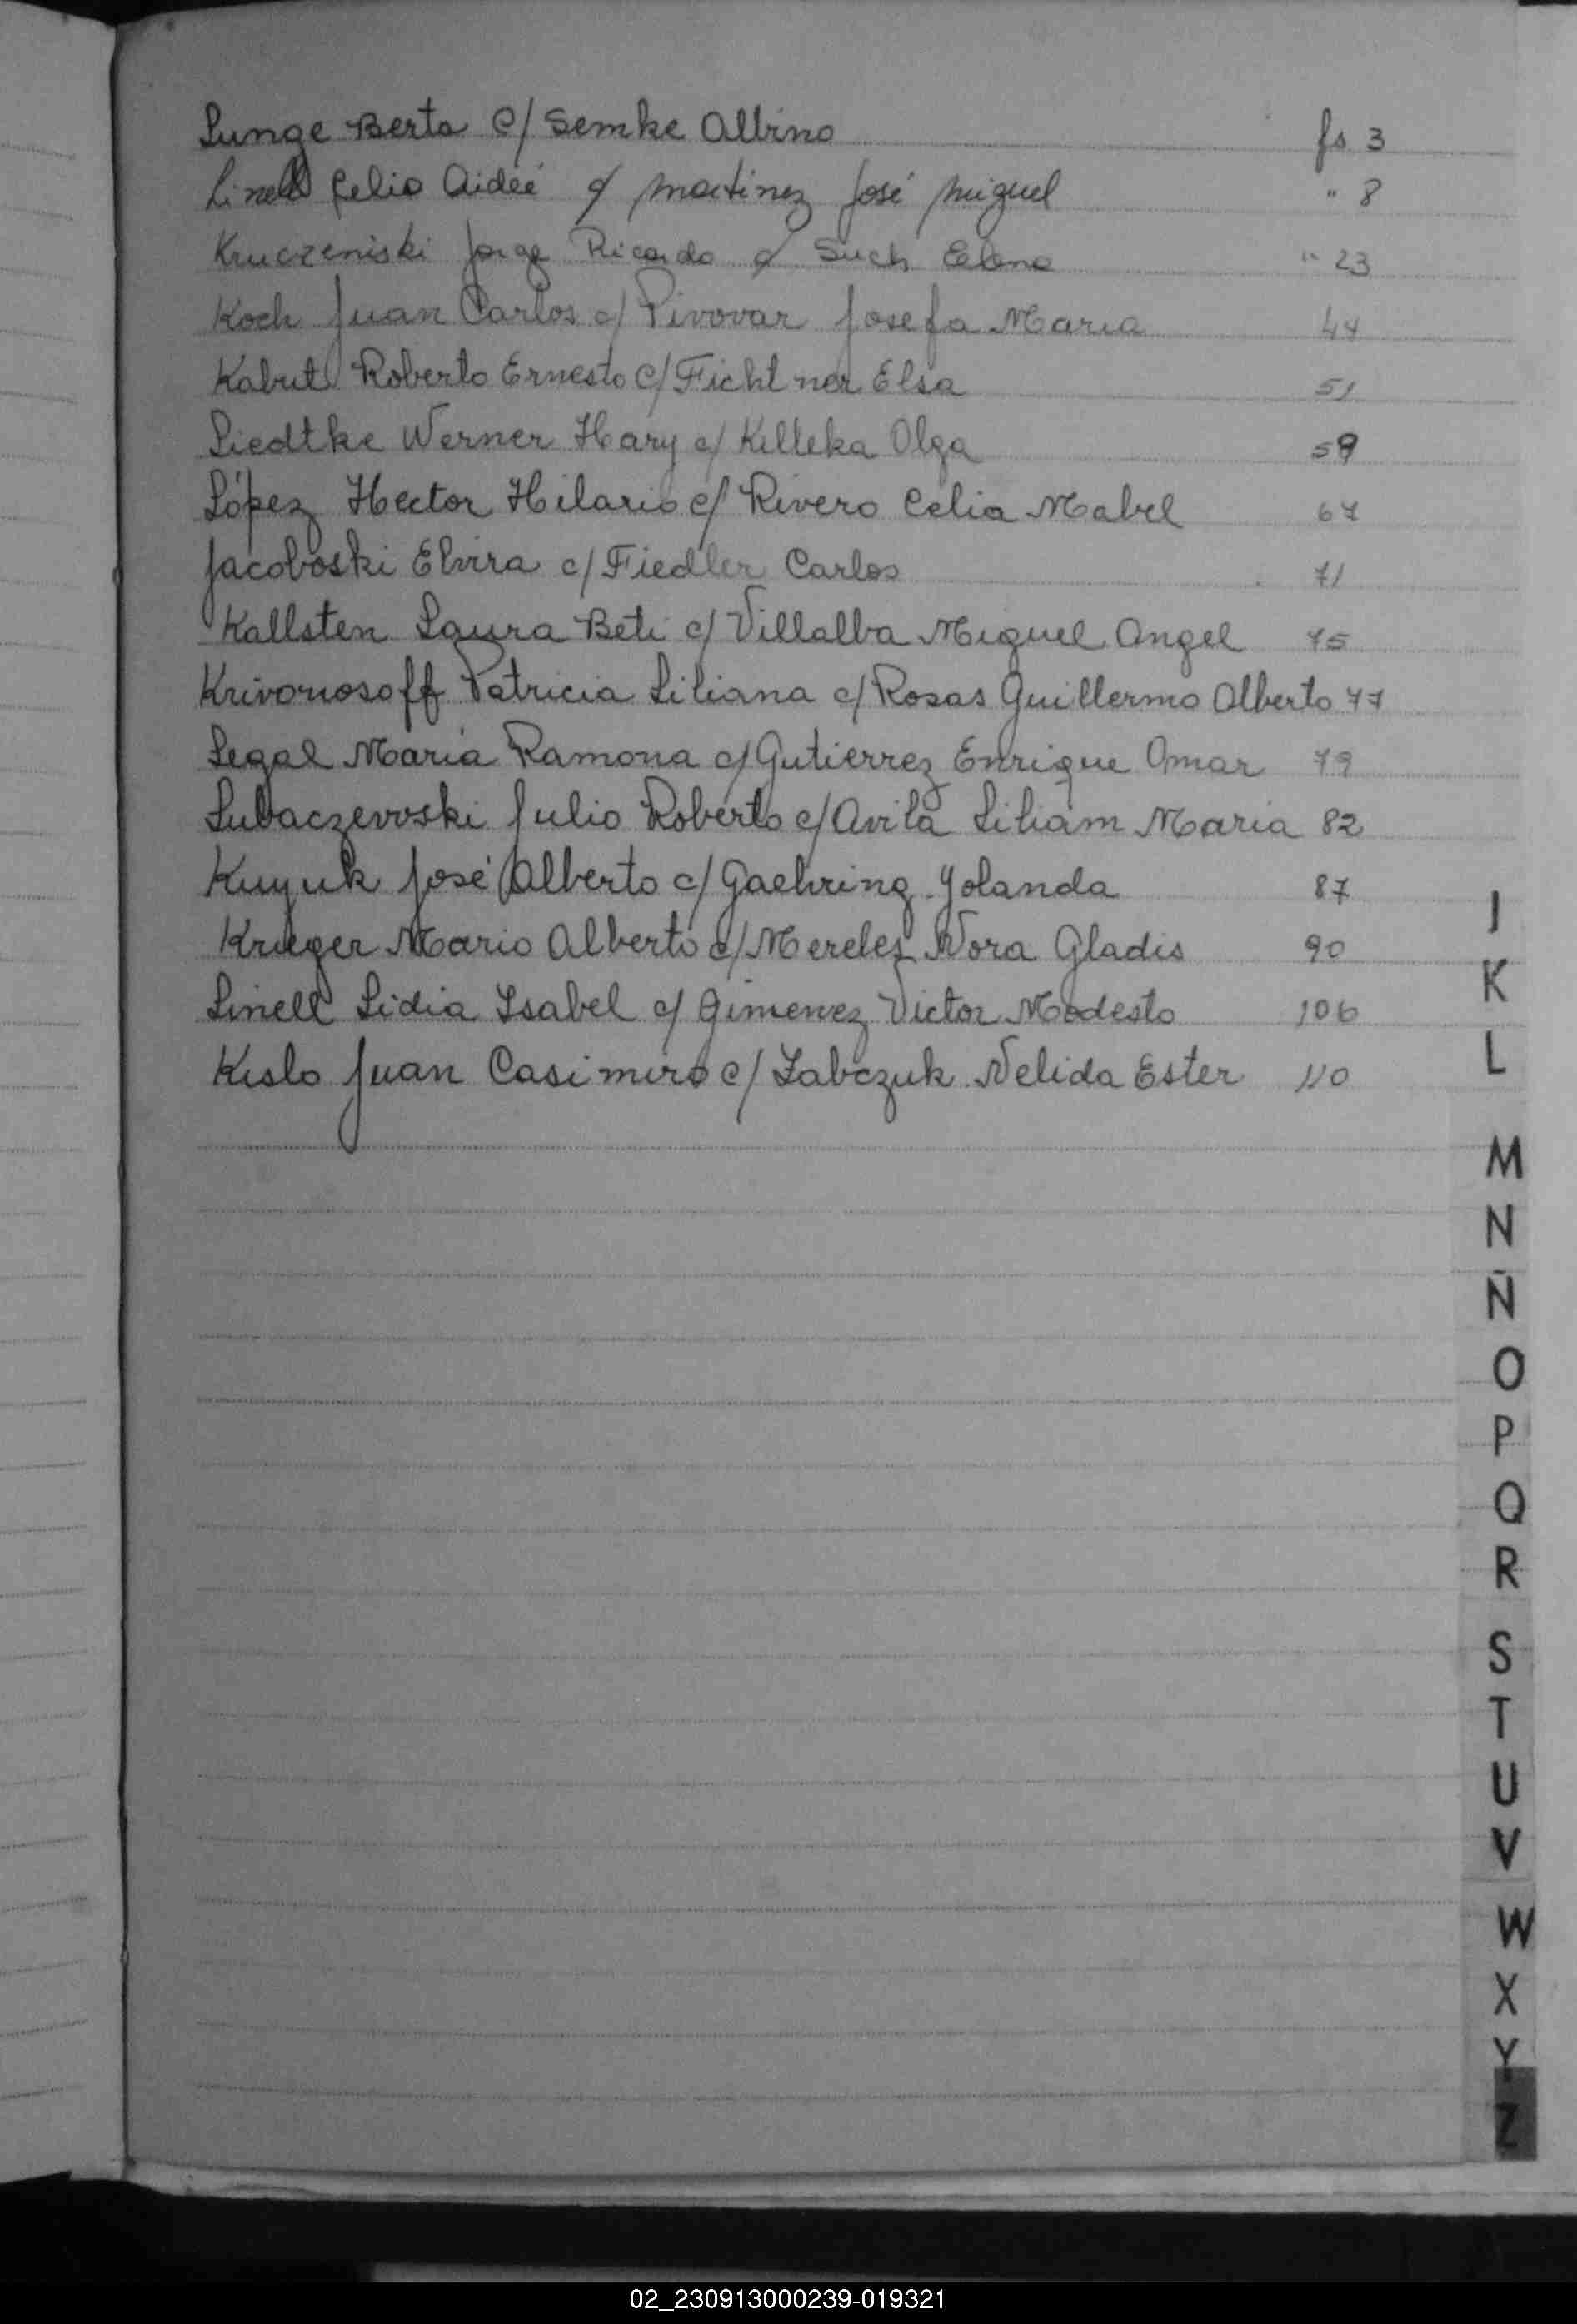 Lunge Berta c/ Semke Albino fs 3
Linell Celia Aideé c/ Martinez José Miguel " 8
Kruczeniski Jorge Ricardo c/ Such Elena " 23
Koch Juan Carlos c/ Pivovar Josefa Maria 44
Kabut Roberto Ernesto c/ Fichtner Elsa 51
Liedtke Werner Hary c/ Killeka Olga 59
López Hector Hilario c/ Rivero Celia Mabel 67
Jacoboski Elvira c/ Fiedler Carlos 71
Kallsten Laura Beti c/ Villalba Miguel Angel 75
Krivonosoff Patricia Liliana c/ Rosas Guillermo Alberto 77
Legal Maria Ramona c/ Gutierrez Enrique Omar 79
Lubaczevvski Julio Roberto c/ Avila Liliam Maria 82
Kuyuk José Alberto c/ Gaehring Yolanda 87
Krieger Mario Alberto c/ Mereles Nora Gladis 90
Linell Lidia Isabel c/ Gimenez Victor Modesto 106
Kislo Juan Casimiro c/ Labczuk Nelida Ester 110
J
K
L
M
N
Ñ
O
P
Q
R
S
T
U
V
W
X
Y
Z
02_230913000239-019321